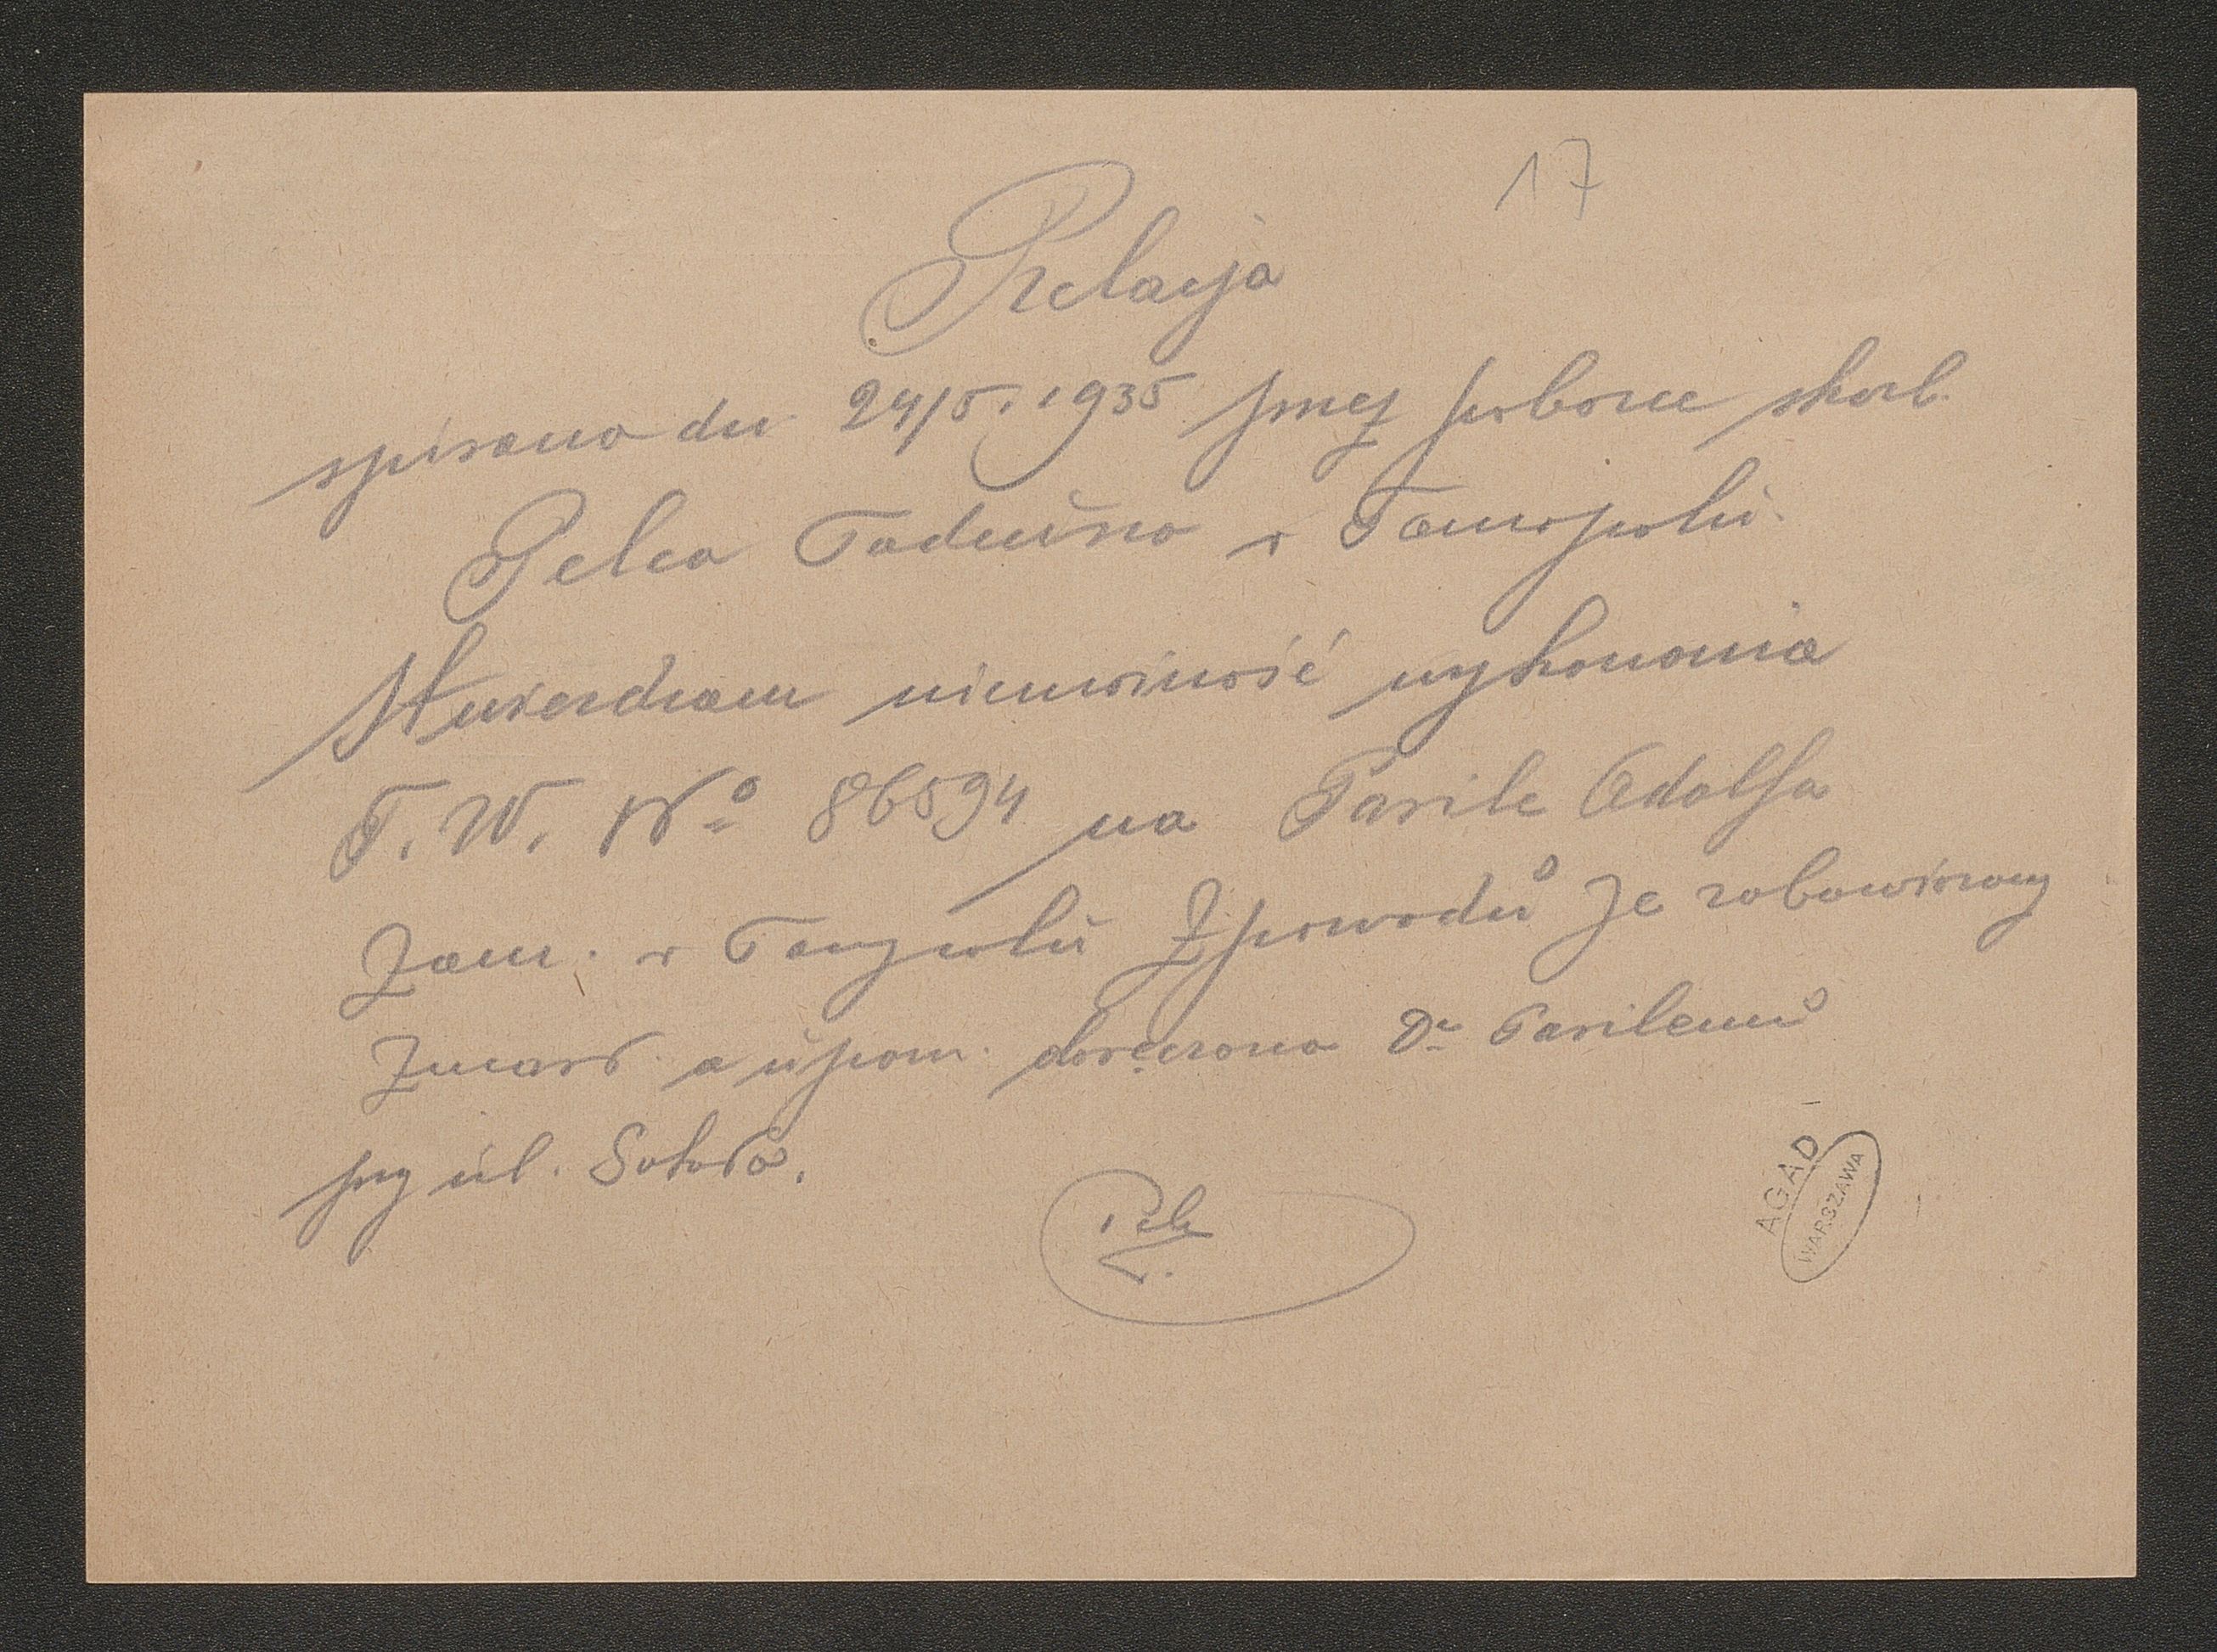 17
Relacja
spisana dn 24/5. 1935 przez poborcę skarb.
Pelca Tadeusza w Tarnopolu.
Stwierdzam niemożność wykonania
T. W. No 86594 na Tasile Adolfa
zam. w Tarnopolu z powodu że zobowiązany
zmarł a upom. doręczono Dr Tasilemu
przy ul. Sokoła.
Pelc
AGAD
WARSZAWA